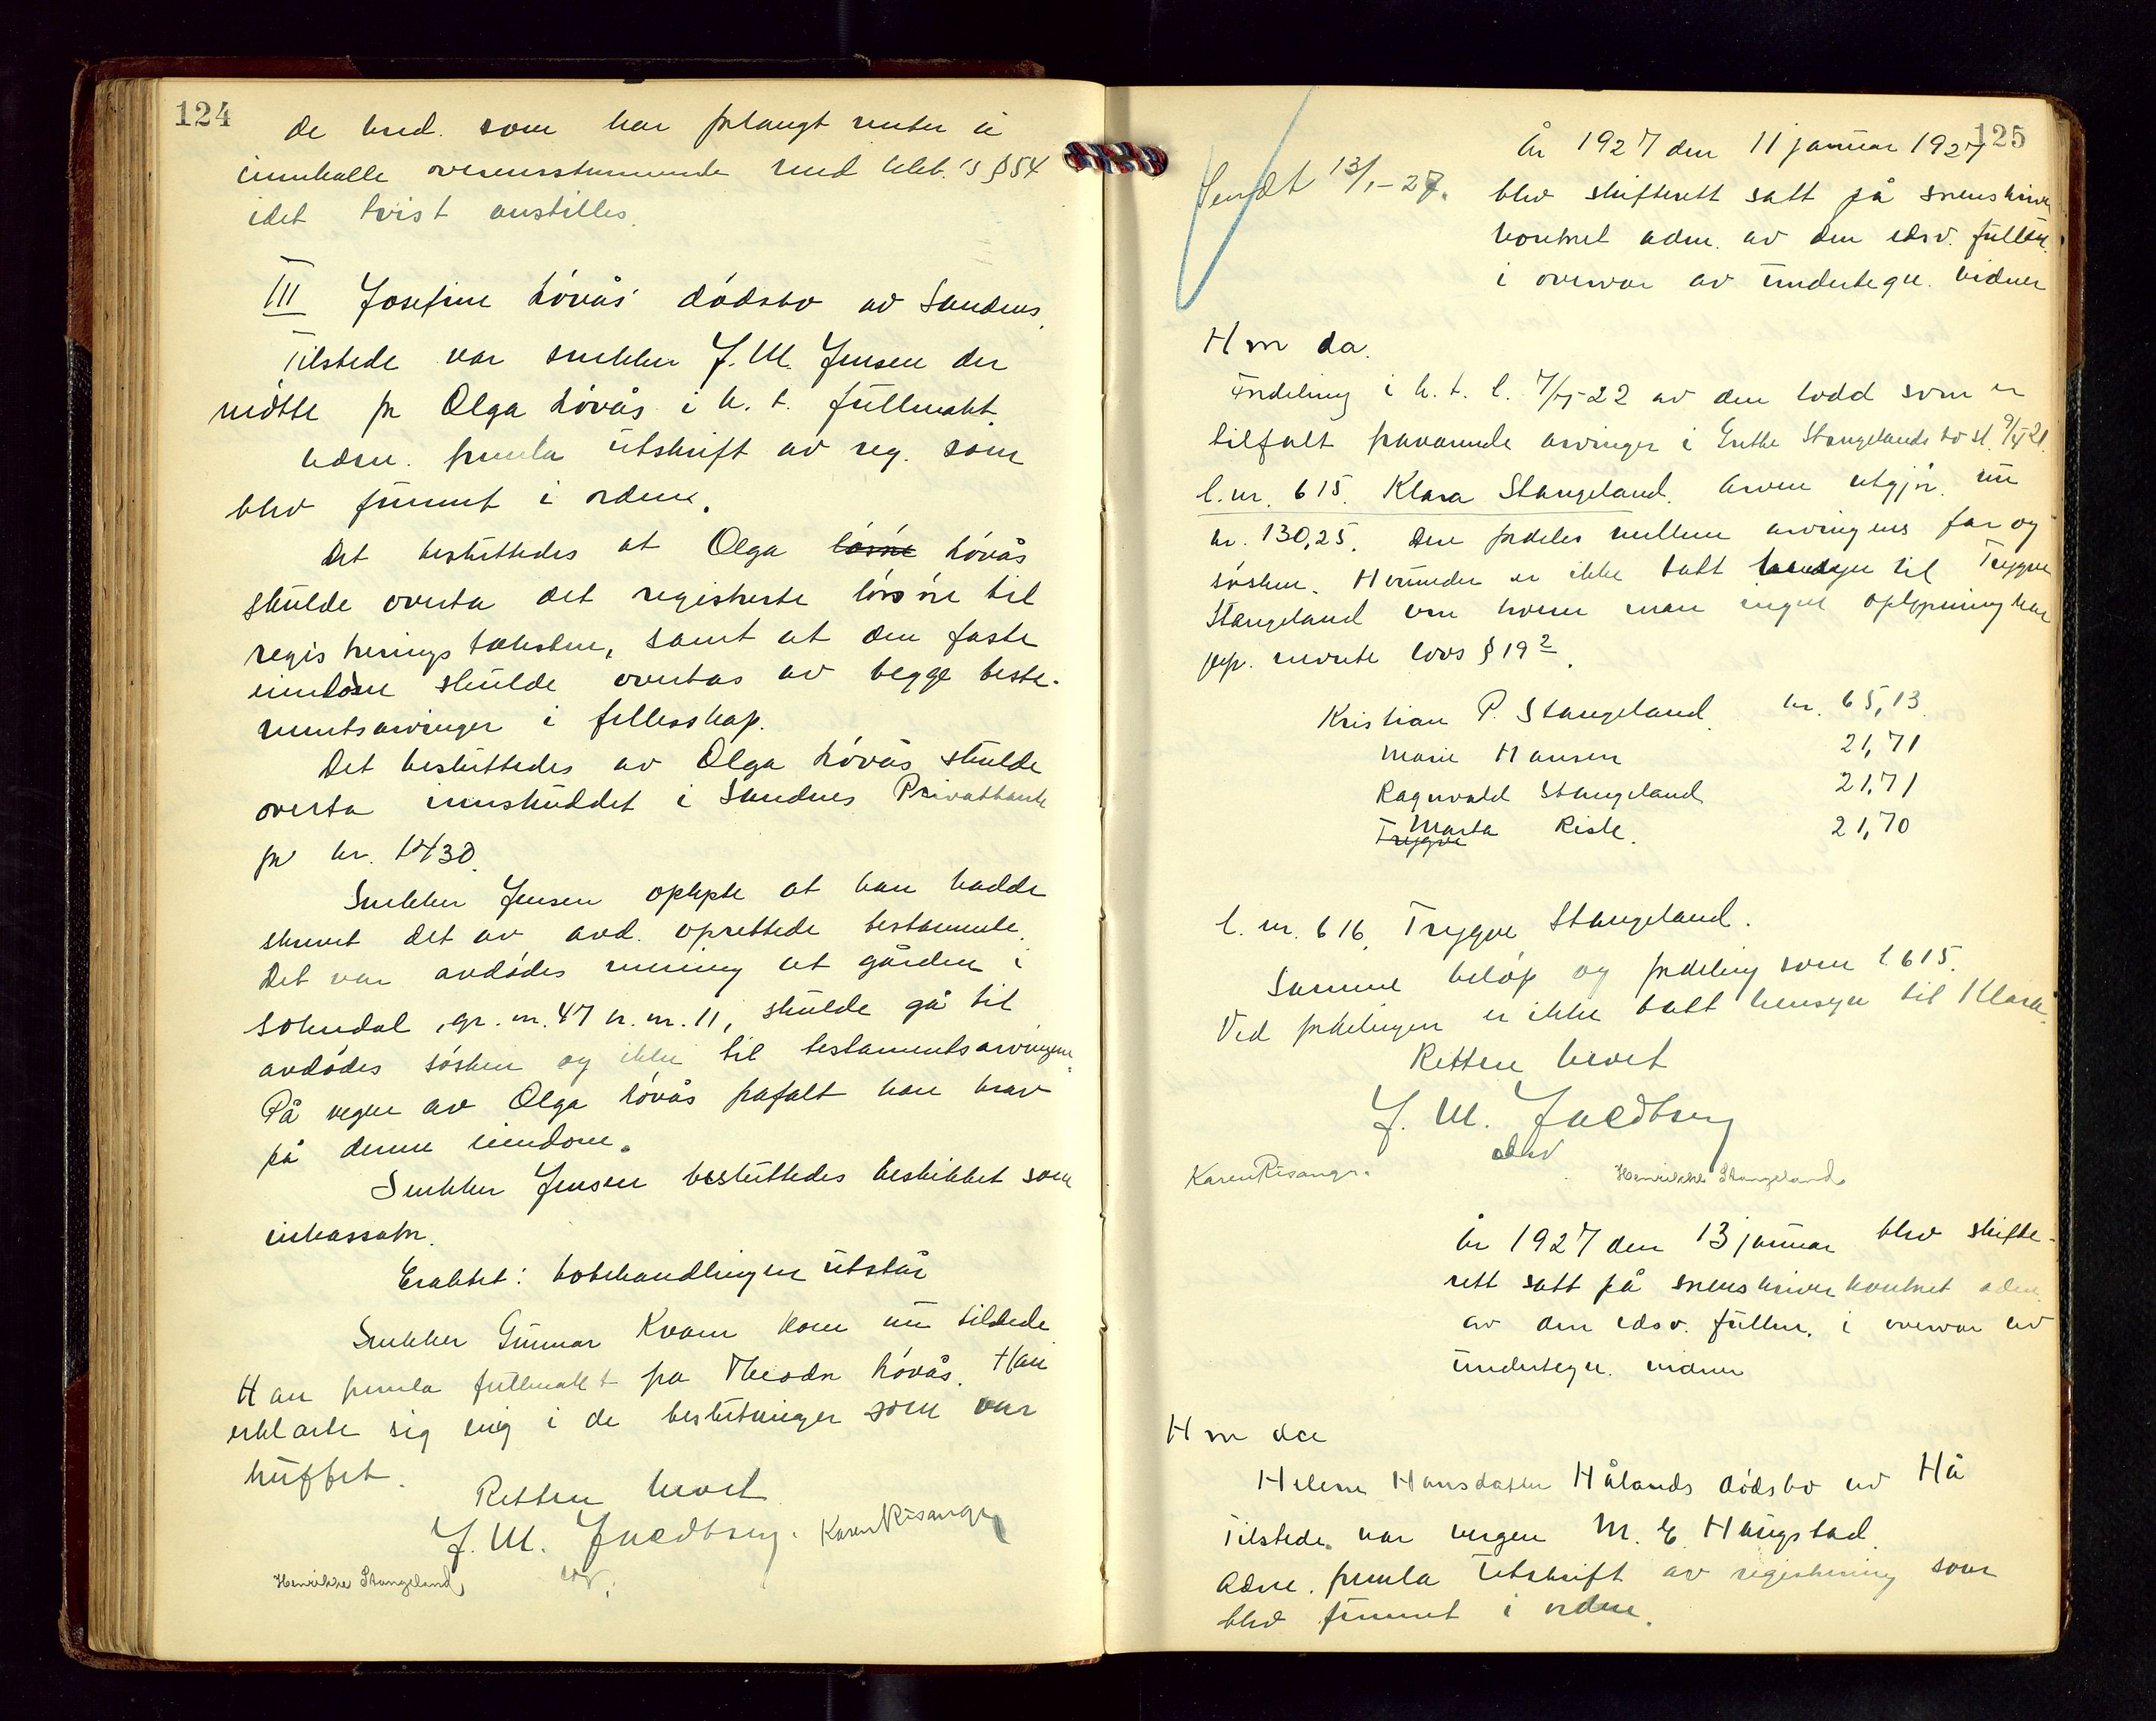 124
de kred. som har forlangt renter å
innkalle overensstemmende med
idet tvist anstilles.
III Josefine Lövås' dödsbo av Sandnes.
Tilstede var snekker J. M. Jensen der
mötte for Olga Lövås i h. t. fullmakt.
Adm. fremla utskrift av reg. som
blev funnet i orden.
Det besluttedes at Olga lösöre Lövås
skulde overta det registrerte lösöre til
registreringstaksten, samt at den faste
eiendom skulde overtas av begge testa-
mentsarvinger i fellesskap.
Det besluttedes av Olga Lövås skulde
overta innskuddet i Sandnes Privatbank
for kr. 1430.
Snekker Jensen oplyste at han hadde
skrevet det av avd. oprettede testamente.
Det var avdödes mening at gården i
Sokndal, gr. nr. 47 br. nr. 11, skulde gå til
avdödes sösken og ikke til testamentsarvingene.
På vegne av Olga Lövås frafalt han krav
på denne eiendom.
Snekker Jensen besluttedes beskikket som
inkassator.
Eraktet: bobehandlingen utstår
Snekker Gunnar Kvam kom nu tilstede
Han fremla fullmakt fra Theodor Lövås. Han
erklærte sig enig i de beslutninger som var
truffet.
Retten hevet
J. M. Karen Risanger
Henrikke Stangeland
125
Sendt 13/1-27.
År 1927 den 11 januar 1927
blev skifterett satt på sorenskriver
kontoret adm. av den edsv. fullm.
i overvær av undertegn. vidner
Hvor da.
Fordeling i h. t. l. 22 av den lodd som er
tilfalt fraværende arvinger i Stangelands bo sl. 21.
l. nr. 615. Klara Stangeland. Arven utgjör nu
kr. 130,25. Den fordeles mellem arvingens far og
sösken. Herunder er ikke tatt hensyn til Trygve
Stangeland om hvem man ingen oplysning har
jfr. nevnte lovs § 19².
Kristian P. Stangeland kr. 65,13
Marie Hansen 21,71
Ragnvald Stangeland 21,71
Trygve Marta Riste. 21,70
l. nr. 616. Trygve Stangeland.
Samme belöp og fordeling som l. 615.
Ved fordelingen er ikke tatt hensyn til Klara.
Retten hevet
J. M.
Karen Risanger. Henrikke Stangeland
År 1927 den 13 januar blev skifte-
rett satt på sorenskriverkontoret adm.
av den edsv. fullm. i overvær av
undertegn. vidner
Hvor da
Helene Hansdatter Hålands dödsbo av Hå
Tilstede var vergen M. E. Haugstad.
Adm. fremla utskrift av registrering som
blev funnet i orden.